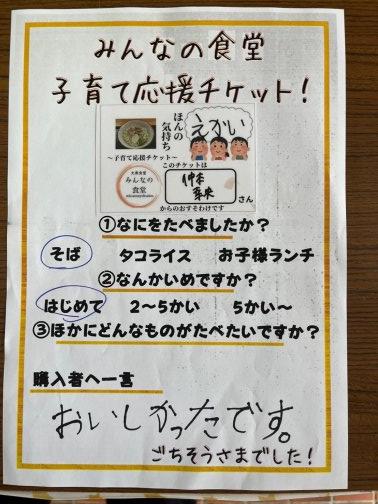 みんなの食堂
子育て応援チケット!
ほんの
気持ち
えかい
~子育て応援チケット~
このチケットは
みんなの
食堂
さん
からのおすそわけです
①なにをたべましたか?
そば タコライス お子様ランチ
②なんかいめですか?
はじめて 2~5かい 5かい~
③ほかにどんなものがたべたいですか?
購入者へ一言
おいしかったです。
ごちそうさまでした!